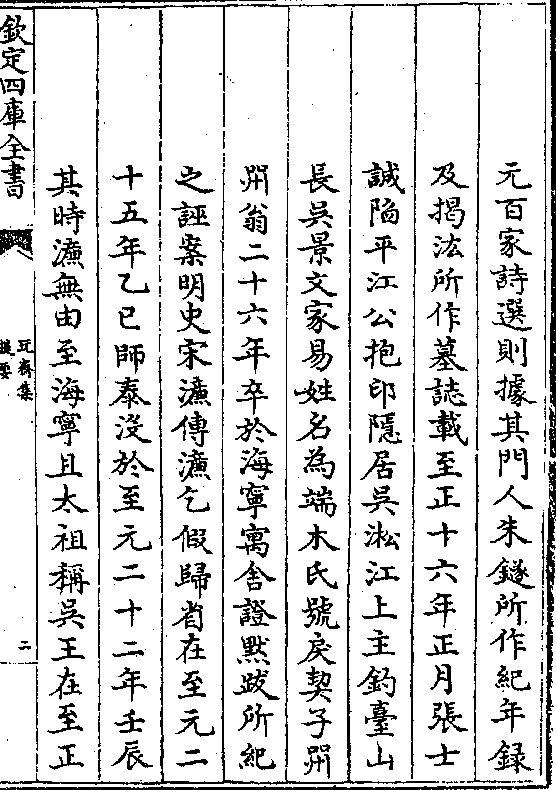 元百家詩選則據其門人朱鐩所作紀年録
及揭汯所作墓誌載至正十六年正月張士
誠陷平江公抱印隱居吳淞江上主釣臺山
長吳景文家易姓名為端木氏號戾契子明
翁二十六年卒於海寧寓舍證黙跋所紀
之誣案明史宋濂傳濂乞假歸省在至元二
十五年乙巳師泰沒於至元二十二年壬辰
其時濂無由至海寧且太祖稱吳王在至正
欽定四庫全書
玩齋集
提要
二